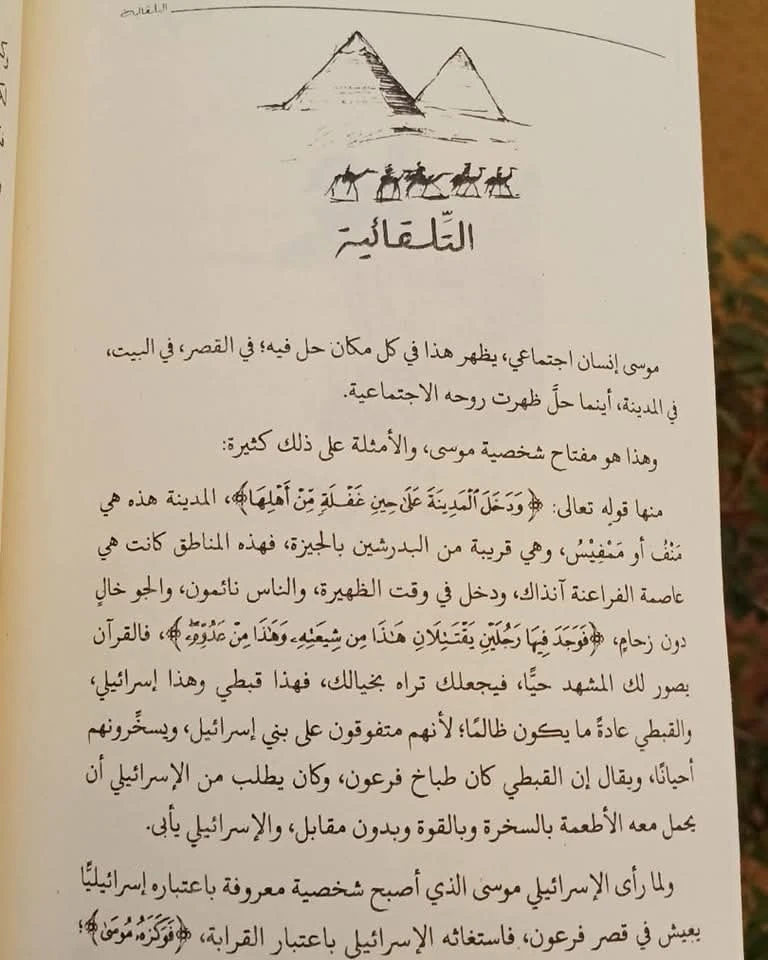 التلقائية
التِّلقائية
موسى إنسان اجتماعي، يظهر هذا في كل مكان حل فيه؛ في القصر، في البيت،
في المدينة، أينما حلَّ ظهرت روحه الاجتماعية.
وهذا هو مفتاح شخصية موسى، والأمثلة على ذلك كثيرة:
منها قوله تعالى: ﴿وَدَخَلَ ٱلْمَدِينَةَ عَلَىٰ حِينِ غَفْلَةٍ مِّنْ أَهْلِهَا﴾، المدينة هذه هي
مَنْفُ أو مَمْفِيْسُ، وهي قريبة من البدرشين بالجيزة، فهذه المناطق كانت هي
عاصمة الفراعنة آنذاك، ودخل في وقت الظهيرة، والناس نائمون، والجو خالٍ
دون زحامٍ، ﴿فَوَجَدَ فِيهَا رَجُلَيْنِ يَقْتَتِلَانِ هَٰذَا مِن شِيعَتِهِۦ وَهَٰذَا مِنْ عَدُوِّهِۦۖ﴾، فالقرآن
يصور لك المشهد حيًّا، فيجعلك تراه بخيالك، فهذا قبطي وهذا إسرائيلي،
والقبطي عادةً ما يكون ظالمًا؛ لأنهم متفوقون على بني إسرائيل، ويسخِّرونهم
أحيانًا، ويقال إن القبطي كان طباخ فرعون، وكان يطلب من الإسرائيلي أن
يحمل معه الأطعمة بالسخرة وبالقوة وبدون مقابل، والإسرائيلي يأبى.
ولما رأى الإسرائيلي موسى الذي أصبح شخصية معروفة باعتباره إسرائيليًّا
يعيش في قصر فرعون، فاستغاثه الإسرائيلي باعتبار القرابة، ﴿فَوَكَزَهُۥ مُوسَىٰ﴾؛